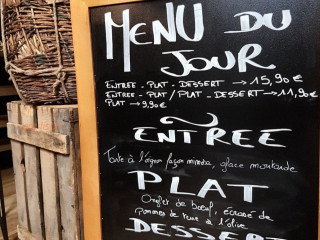 MENU DU
JOUR
ENTREE - PLAT - DESSERT → 15,90€
ENTREE - PLAT / PLAT - DESSERT → 11,90€
PLAT → 9,90€
ENTREE
Tarte à l'oignon façon mimosa, glace moutarde
PLAT
Onglet de boeuf, écrasé de
pommes de terre à l'olive
DESSERT